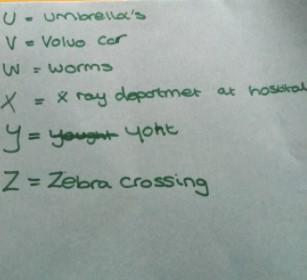 U = umbrella's
V = Volvo car
W = worms
X = X ray deportmet at hosital
Y = yought yoht
Z = Zebra crossing